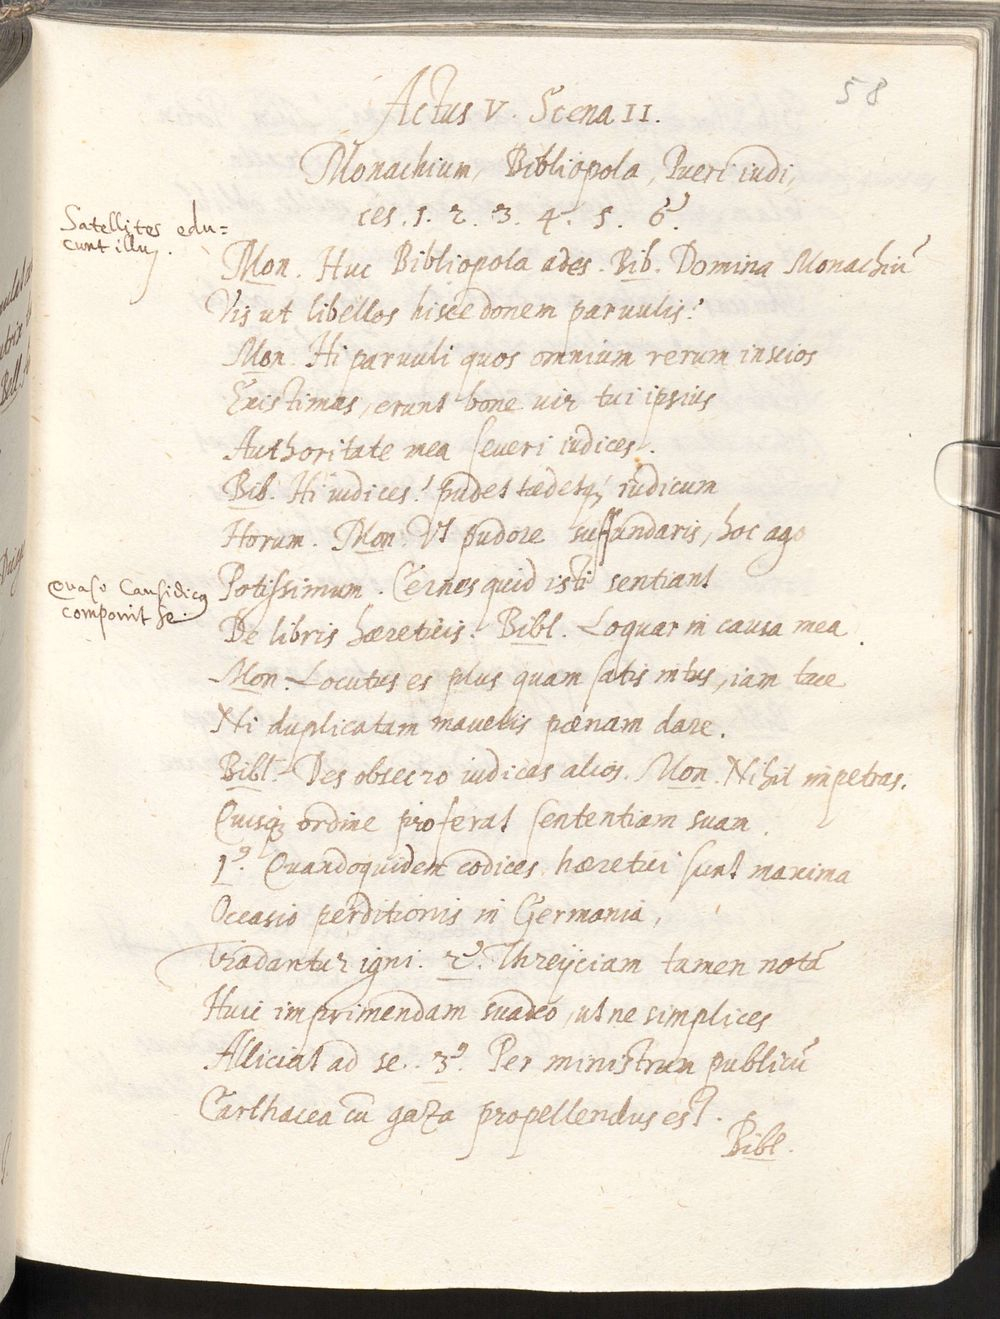 58
Actus V. Scena II.
Monachium, Bibliopola, Pueri iudi,
ces. 1. 2. 3. 4. 5. 6.
Satellites edu=
cunt illũ.
Mon. Huc Bibliopola ades. Bib. Domina Monachiũ
Vis ut libellos hisce donem paruulis?
Mon. Hi paruuli quos omnium rerum inscios
Existimas, erunt bone uir tui ipsius
Authoritate mea seueri iudices.
Bib. Hi iudices! pudet tædetq; iudicum
Horum. Mon. Vt pudore suffundaris, hoc ago
Potissimum. Cernes quid isti sentiant
Quasi Causidicq
componit se.
De libris hæreticis. Bibl. Loquar in causa mea.
Mon. Locutus es plus quam satis intus, iam tace
Ni duplicatam mauelis pœnam dare.
Bibl. Des obsecro iudices alios. Mon. Nihil impetras.
Quisq; ordine proferat sententiam suam.
1⁹. Quandoquidem codices hæretici sunt maxima
Occasio perditionis in Germania,
Tradantur igni. 2⁹. Threijciam tamen notã
Huic imprimendam suadeo, ut ne simplices
Alliciat ad se. 3⁹. Per ministrum publicũ
Carthacea cũ gaza propellendus est.
Bibl.